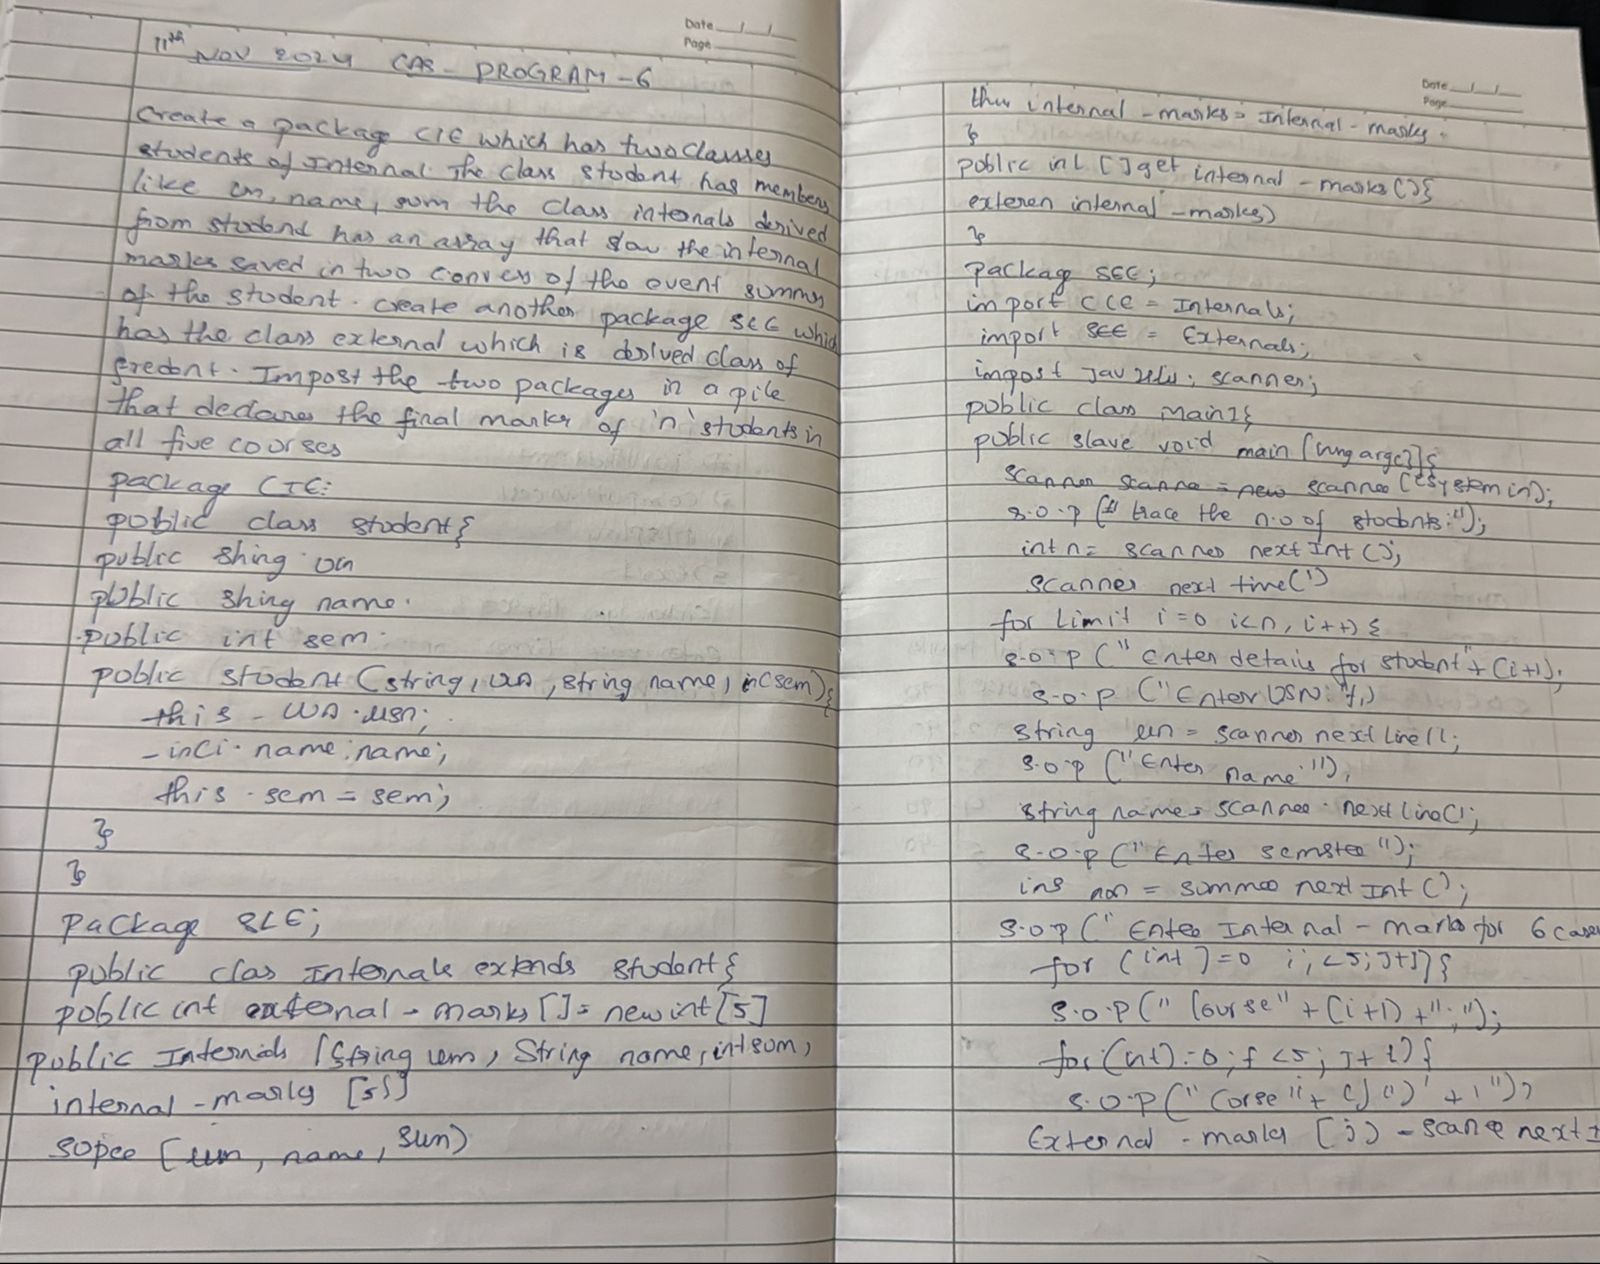 Date __/__/__
Page
11th NOV 2024 CAS - PROGRAM - 6
Create a package CIE which has two classes
students of Internal. The class student has members
like on, name, som the class internals derived
from studend has an array that stow the internal
marks saved in two convers of the ovent summs
of the student. create another package SEE which
has the class external which is derived class of
Predent. Impost the two packages in a pile
that declares the final marks of 'n' students in
all five courses
package CIE:
public class student{
public shing on
public shing name.
public int sem.
public student (string, un, string name, int sem){
this - un.usn;
- inci. name:name;
this.sem = sem;
}
}
package SLE;
public clas Internals extends student{
public int external - marks [] = new int [5]
public Internals [String um, String name, int sum,
internal - marks [5)]
sopee (um, name, sun)
Date __/__/__
Page
thw internal - marks = Internal - marks.
}
public int [] get internal - marks () {
exteren internal - marks)
}
package SEE;
import CCE = Internals;
import SEE = Externals;
impost Jav ; scanner;
public class Main1{
public slave void main [ung argc]]{
scanner scanne = new scanner (system in);
s.o.p (" trace the n.o of students:");
int n = scanner next Int ();
scanner next time(')
for limit i=0 i<n, i++) {
s.o.p (" Enter details for student" + (i+1);
s.o.p ("Enter USN:");
string un = scanner next line();
s.o.p ("Enter name:");
string name = scannee. next line();
s.o.p (" Enter semstee ");
ins non = summoo next Int ();
s.o.p (" Entee Internal - marks for 6 case
for (int J=0 i; <5; J+J){
s.o.p (" Course" + (i+1) + ":");
for (int) = 0; f <5; J+1){
s.o.p (" Corse " + (J ") ' + 1 ")?
External - marks [j) - scane next I